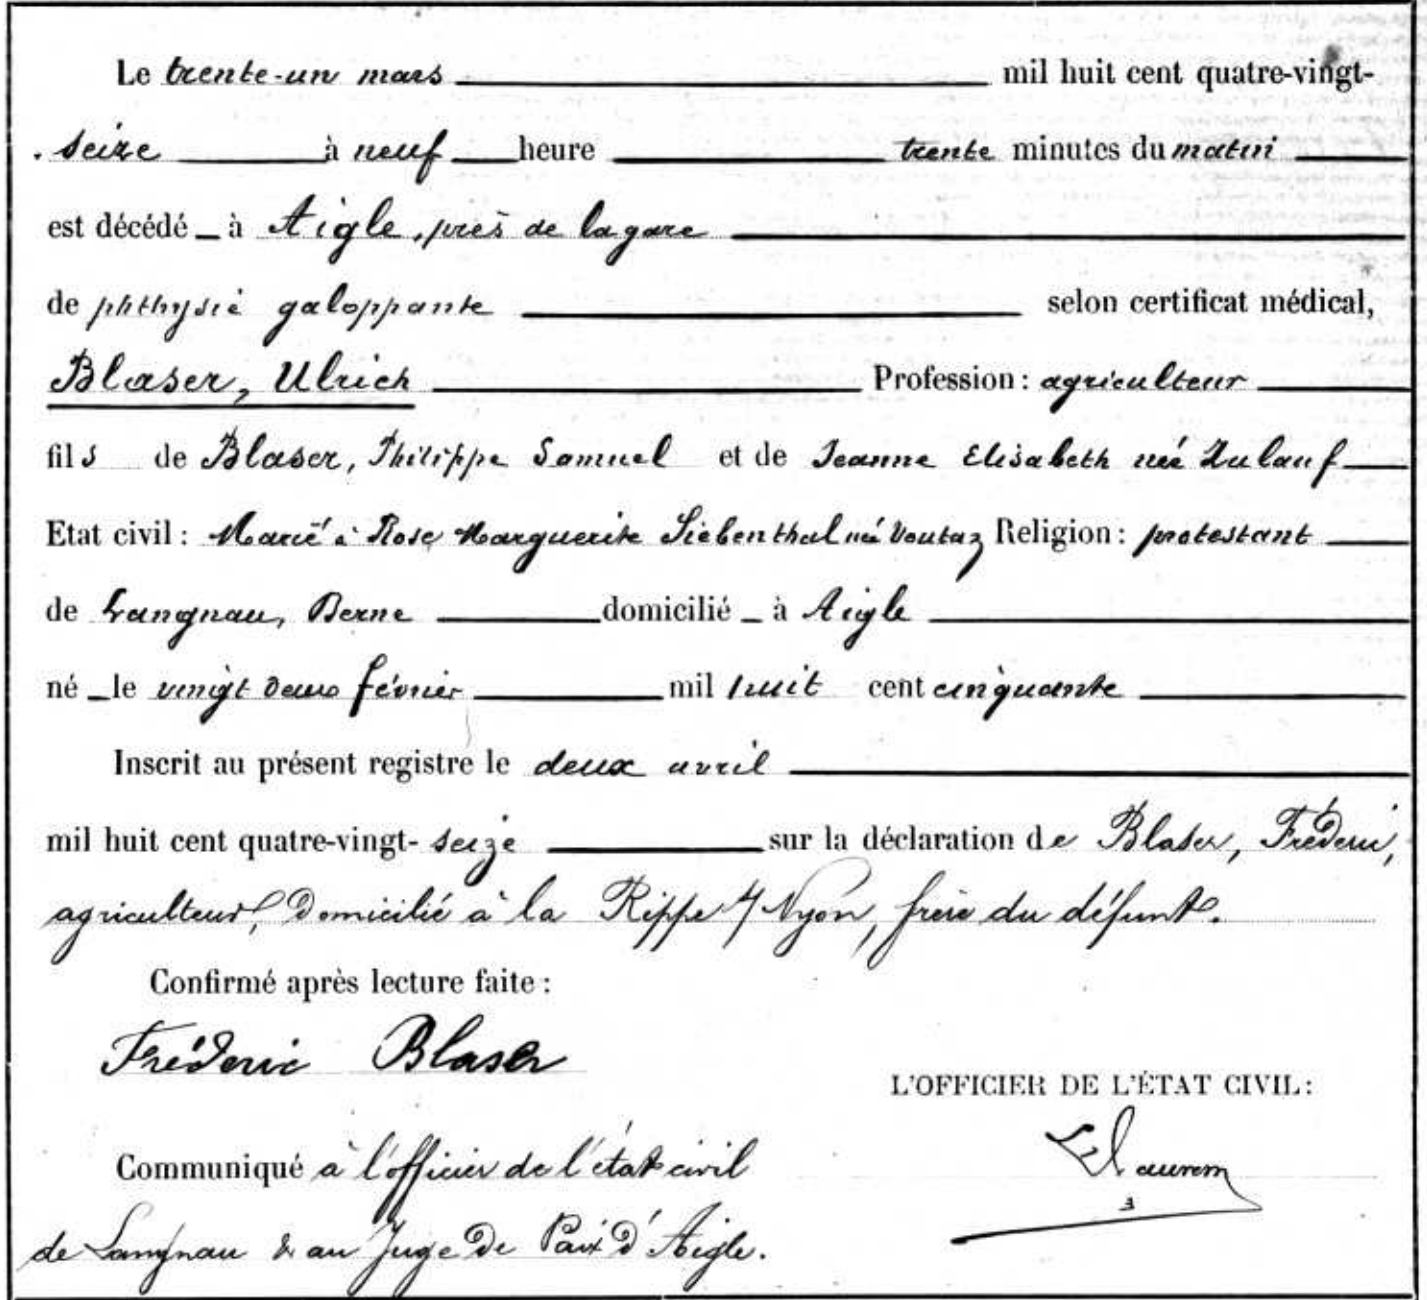 Le trente-un mars mil huit cent quatre-vingt-
seize à neuf heure trente minutes du matin
est décédé à Aigle, près de la gare
de phthysie galoppante selon certificat médical,
Blaser, Ulrich Profession : agriculteur
fils de Blaser, Philippe Samuel et de Jeanne Elisabeth née Zulauf
Etat civil : Marié à Rose Marguerite Siebenthal née Voutaz Religion : protestant
de Langnau, Berne domicilié à Aigle
né le vingt deux février mil huit cent cinquante
Inscrit au présent registre le deux avril
mil huit cent quatre-vingt- seize sur la déclaration de Blaser, Fréderic,
agriculteur, domicilié à la Rippe s/ Nyon, frère du défunt.
Confirmé après lecture faite :
Fréderic Blaser
L'OFFICIER DE L'ÉTAT CIVIL :
Communiqué à l'officier de l'état civil
de Langnau & au Juge de Paix d'Aigle.